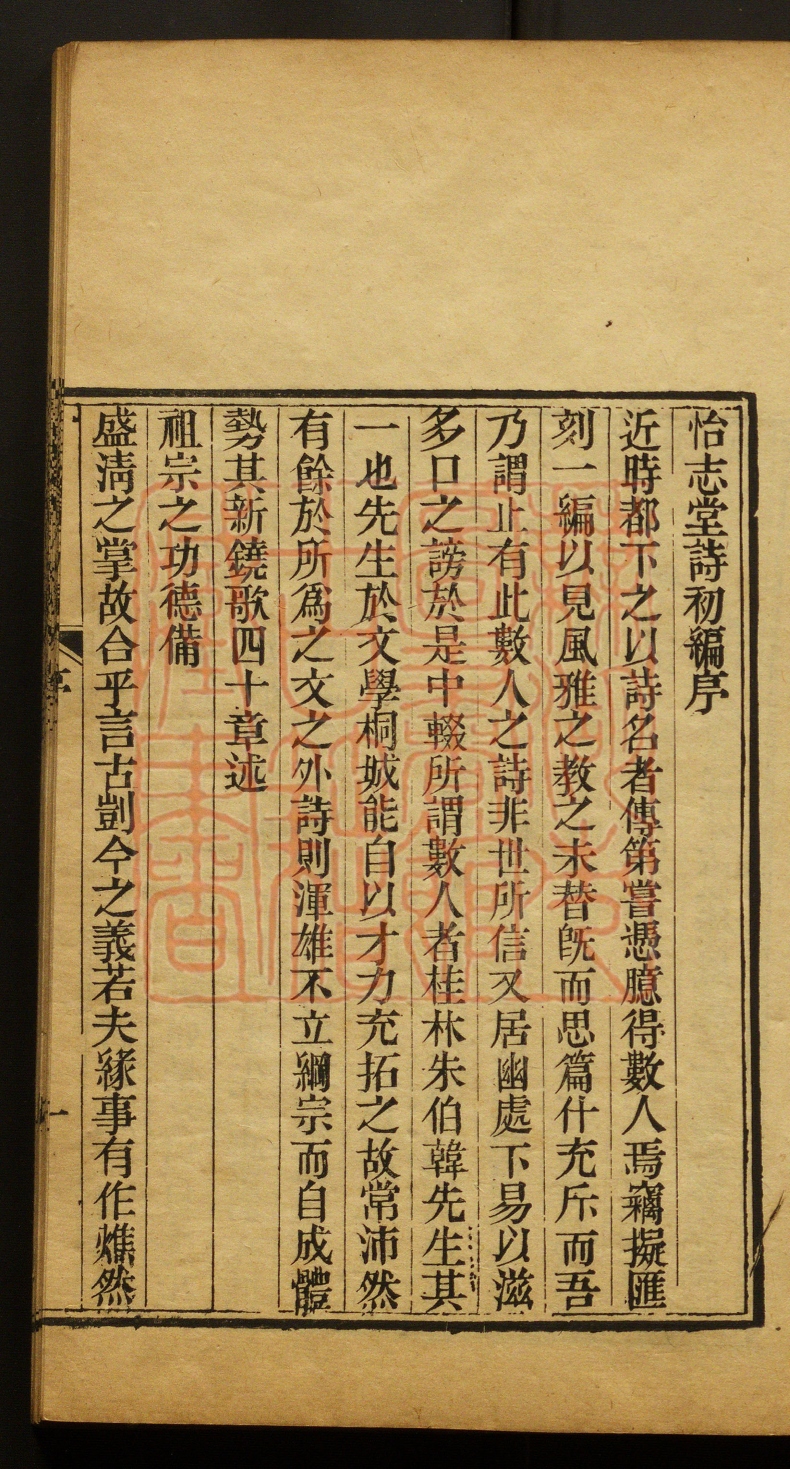 怡志堂詩初編序
近時都下之以詩名者傳第嘗憑臆得數人焉竊擬匯
刻一編以見風雅之教之未替旣而思篇什充斥而吾
乃謂止有此數人之詩非世所信又居幽處下易以滋
多口之謗於是中輟所謂數人者桂林朱伯韓先生其
一也先生於文學桐城能自以才力充拓之故常沛然
有餘於所爲之文之外詩則渾雄不立綱宗而自成體
勢其新鐃歌四十章述
祖宗之功德備
盛淸之掌故合乎言古剴今之義若夫緣事有作燋然
序
一